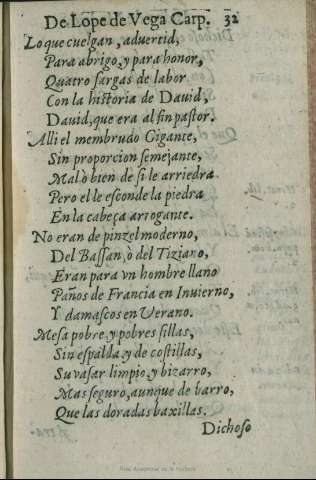 De Lope de Vega Carp. 32
Lo que cuelgan, aduertid,
Para abrigo, y para honor,
Quatro sargas de labor
Con la historia de Dauid,
Dauid, que era al fin pastor.
Alli el membrudo Gigante,
Sin proporcion semejante,
Mal ò bien de si le arriedra
Pero el le esconde la piedra
En la cabeça arrogante.
No eran de pinzel moderno,
Del Bassan, ò del Tiziano,
Eran para vn hombre llano
Paños de Francia en Inuierno,
Y damascos en Verano.
Mesa pobre, y pobres sillas,
Sin espalda, y de costillas,
Su vasar limpio, y bizarro,
Mas seguro, aunque de barro,
Que las doradas baxillas.
Dichoso